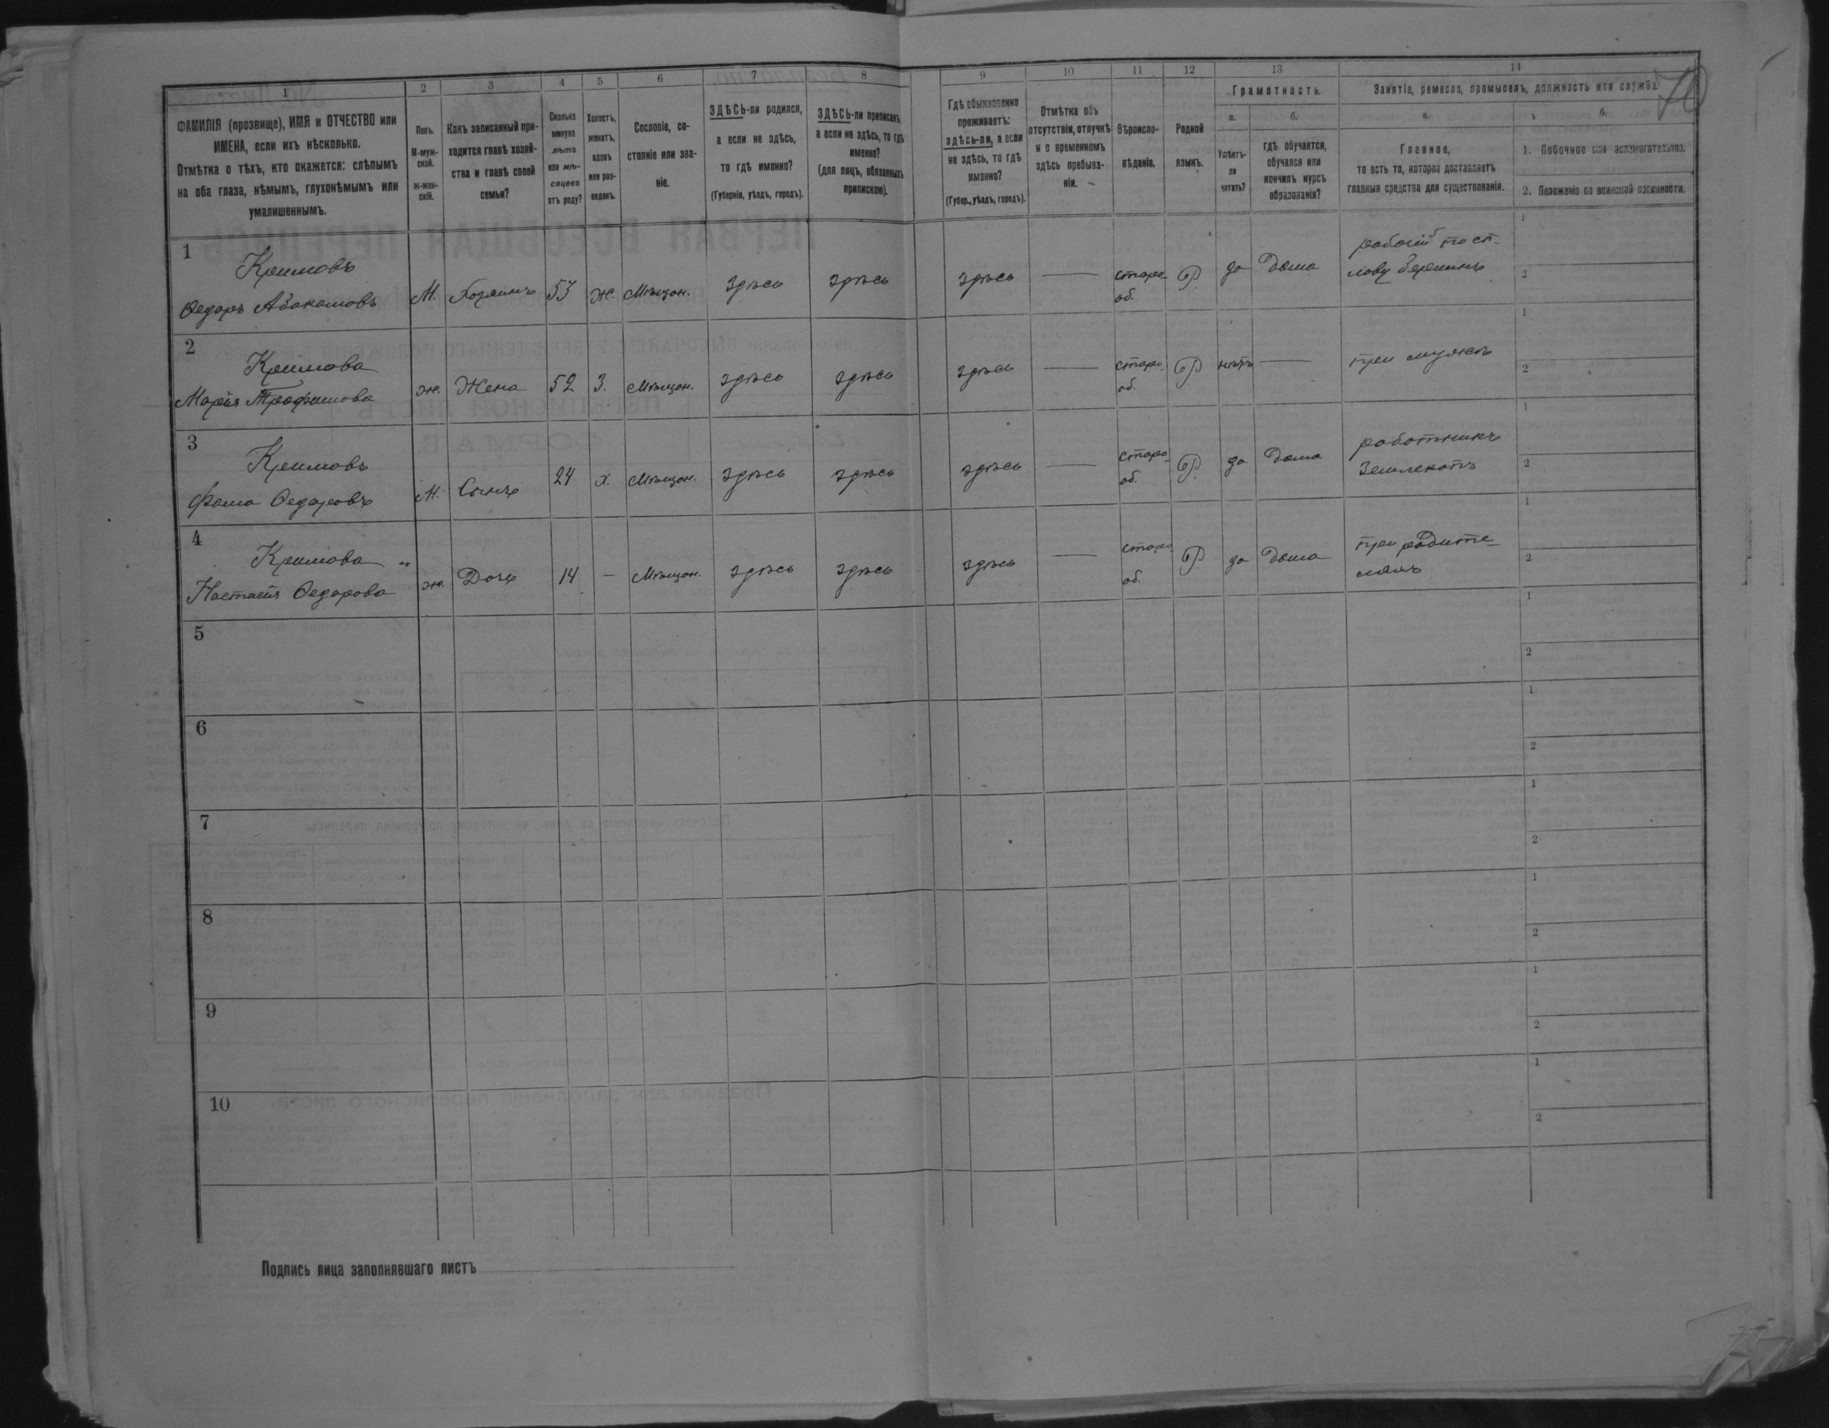 70
1 2 3 4 5 6 7 8 9 10 11 12 13 14
ФАМИЛІЯ (прозвище), ИМЯ и ОТЧЕСТВО или
ИМЕНА, если ихъ нѣсколько.
Отмѣтка о тѣхъ, кто окажется: слѣпымъ
на оба глаза, нѣмымъ, глухонѣмымъ или
умалишеннымъ.
Полъ.
М-муж-
ской.
Ж-жен-
скій.
Какъ записанный при-
ходится главѣ хозяй-
ства и главѣ своей
семьи?
Сколько
минуло
лѣтъ
или мѣ-
сяцевъ
отъ роду?
Холостъ,
женатъ,
вдовъ
или раз-
веденъ.
Сословіе, со-
стояніе или зва-
ніе.
ЗДѢСЬ-ли родился,
а если не здѣсь,
то гдѣ именно?
(Губернія, уѣздъ, городъ).
ЗДѢСЬ-ли приписанъ,
а если не здѣсь, то гдѣ
именно?
(для лицъ, обязанныхъ
припискою).
Гдѣ обыкновенно
проживаетъ:
здѣсь-ли, а если
не здѣсь, то гдѣ
именно?
(Губер., уѣздъ, городъ).
Отмѣтка объ
отсутствіи, отлучкѣ
и о временномъ
здѣсь пребыва-
ніи.
Вѣроиспо-
вѣданіе.
Родной
языкъ.
Грамотность.
а. б.
Умѣетъ-
ли
читать?
гдѣ обучается,
обучался или
кончилъ курсъ
образованія?
Занятіе, ремесло, промыселъ, должность или служба.
а. б.
Главное,
то есть то, которое доставляетъ
главныя средства для существованія.
1. Побочное или вспомогательное.
2. Положеніе по воинской повинности.
1 Климовъ
Ѳедоръ Абакомовъ М. Хозяинъ 53 ж. Мѣщан. Здѣсь здѣсь здѣсь — старо
об. Р. да Дома рабочій
1
2
2 Климова
Марія Трофимова ж. Жена 52 З. Мѣщан. здѣсь здѣсь здѣсь — старо
об. Р нѣтъ — при мужѣ
1
2
3 Климовъ
Фома Ѳедоровъ М. Сынъ 24 х. Мѣщан. здѣсь здѣсь здѣсь — старо
об. Р. да Дома работникъ
Землекопъ
1
2
4 Климова
Настасія Ѳедорова ж. Дочь 14 — Мѣщан. здѣсь здѣсь здѣсь — старо
об. Р да Дома при родите-
ляхъ
1
2
5
1
2
6
1
2
7
1
2
8
1
2
9
1
2
10
1
2
Подпись лица заполнявшаго листъ